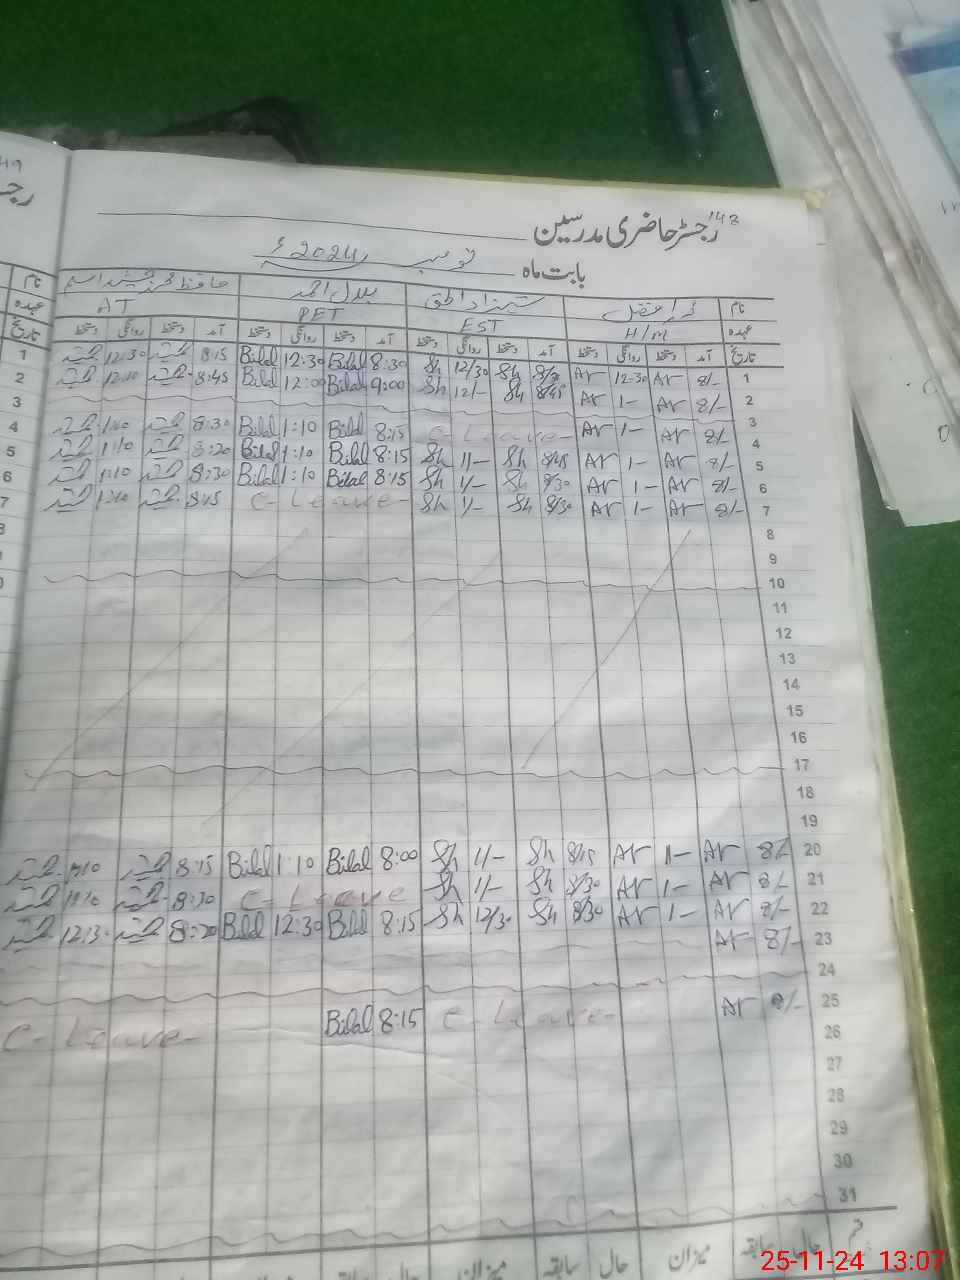 148
رجسٹر حاضری مدرسین
بابت ماہ نومبر 2024ء
نام
بلال احمد
عہدہ H/M EST PET AT
تاریخ آمد دستخط روانگی دستخط آمد دستخط روانگی دستخط آمد دستخط روانگی دستخط آمد دستخط روانگی دستخط
1 8/- Ar 12-30 Ar 8/30 Sh 12/30 Sh 8:30 Bilal 12:30 Bilal 8:15 12:30
2 8/- Ar 1- Ar 8/45 Sh 12/- Sh 9:00 Bilal 12:00 Bilal 8:45 12:10
3
4 8/- Ar 1- Ar C-Leave- 8:15 Bilal 1:10 Bilal 8:30 1:10
5 8/- Ar 1- Ar 8/45 Sh 1/- Sh 8:15 Bilal 1:10 Bilal 8:20 1:10
6 8/- Ar 1- Ar 8/30 Sh 1/- Sh 8:15 Bilal 1:10 Bilal 8:30 1:10
7 8/- Ar 1- Ar 8/30 Sh 1/- Sh C-Leave- 8:15 1:10
8
9
10
11
12
13
14
15
16
17
18
19
20 8/- Ar 1- Ar 8/15 Sh 1/- Sh 8:00 Bilal 1:10 Bilal 8:15 1:10
21 8/- Ar 1- Ar 8/30 Sh 1/- Sh C-Leave 8:30 1:10
22 8/- Ar 1- Ar 8/30 Sh 12/30 Sh 8:15 Bilal 12:30 Bilal 8:20
23 8/- Ar
24
25 8/- Ar C-Leave- 8:15 Bilal C-Leave-
26
27
28
29
30
31
حال سابقہ میزان حال سابقہ میزان حال
25-11-24 13:07